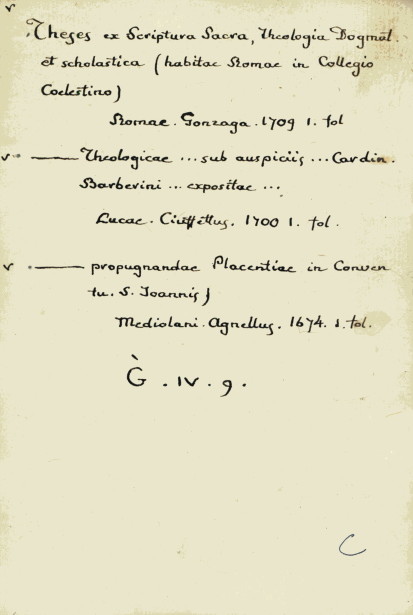 v
Theses ex Scriptura Sacra, Theologia Dogmat.
et scholastica (habitae Romae in Collegio
Coelestino)
Romae. Gonzaga. 1709 1. fol
v — Theologicae ... sub auspiciis ... Cardin.
Barberini ... expositae ...
Lucae. Ciuffettus. 1700 1. fol.
v — propugnandae Placentiae in Conven
tu. S. Ioannis)
Mediolani. Agnellus. 1674. 1. fol.
G̀. IV. 9.
C